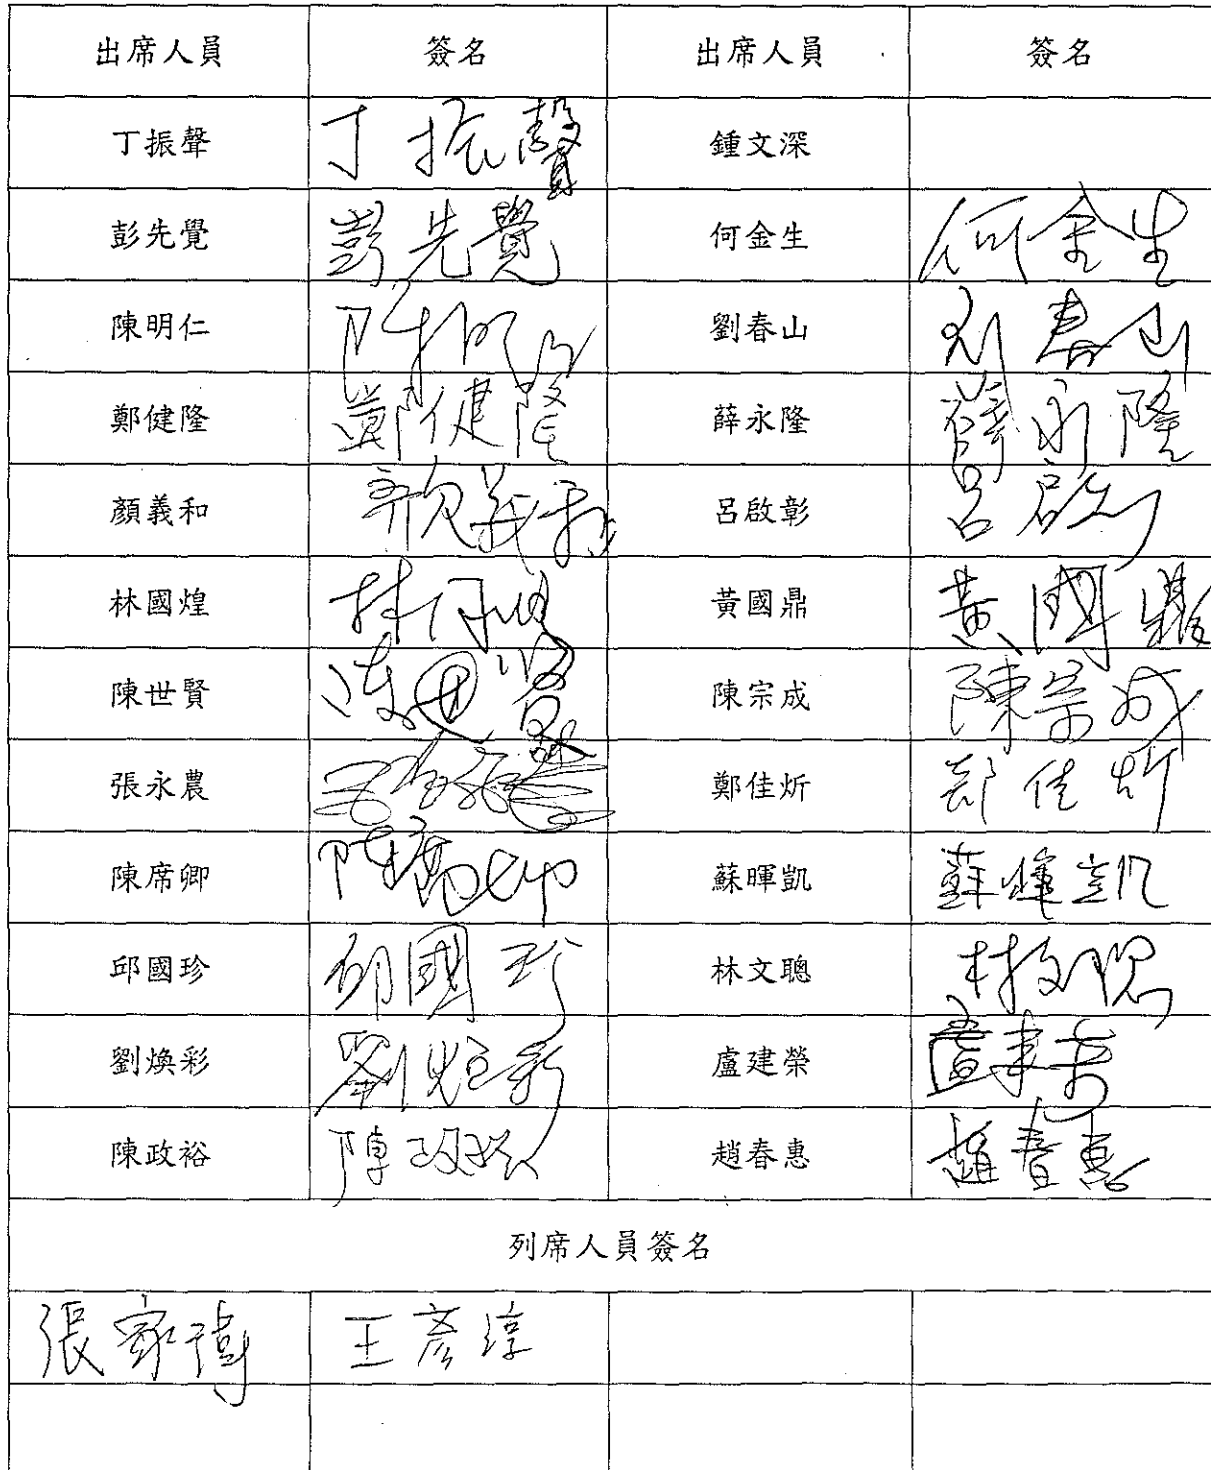 出席人員 簽名 出席人員 簽名
丁振聲 丁振聲 鍾文深
彭先覺 彭先覺 何金生 何金生
陳明仁 劉春山 刘春山
鄭健隆 鄭健隆 薛永隆 薛永隆
顏義和 呂啟彰
林國煌 黃國鼎 黃國鼎
陳世賢 陳宗成 陳宗成
張永農 鄭佳炘 郑佳炘
陳席卿 陳席卿 蘇暉凱 蘇暉凱
邱國珍 邱國珍 林文聰 林文聰
劉煥彩 盧建榮
陳政裕 趙春惠 趙春惠
列席人員簽名
張家瑋 王彥淳